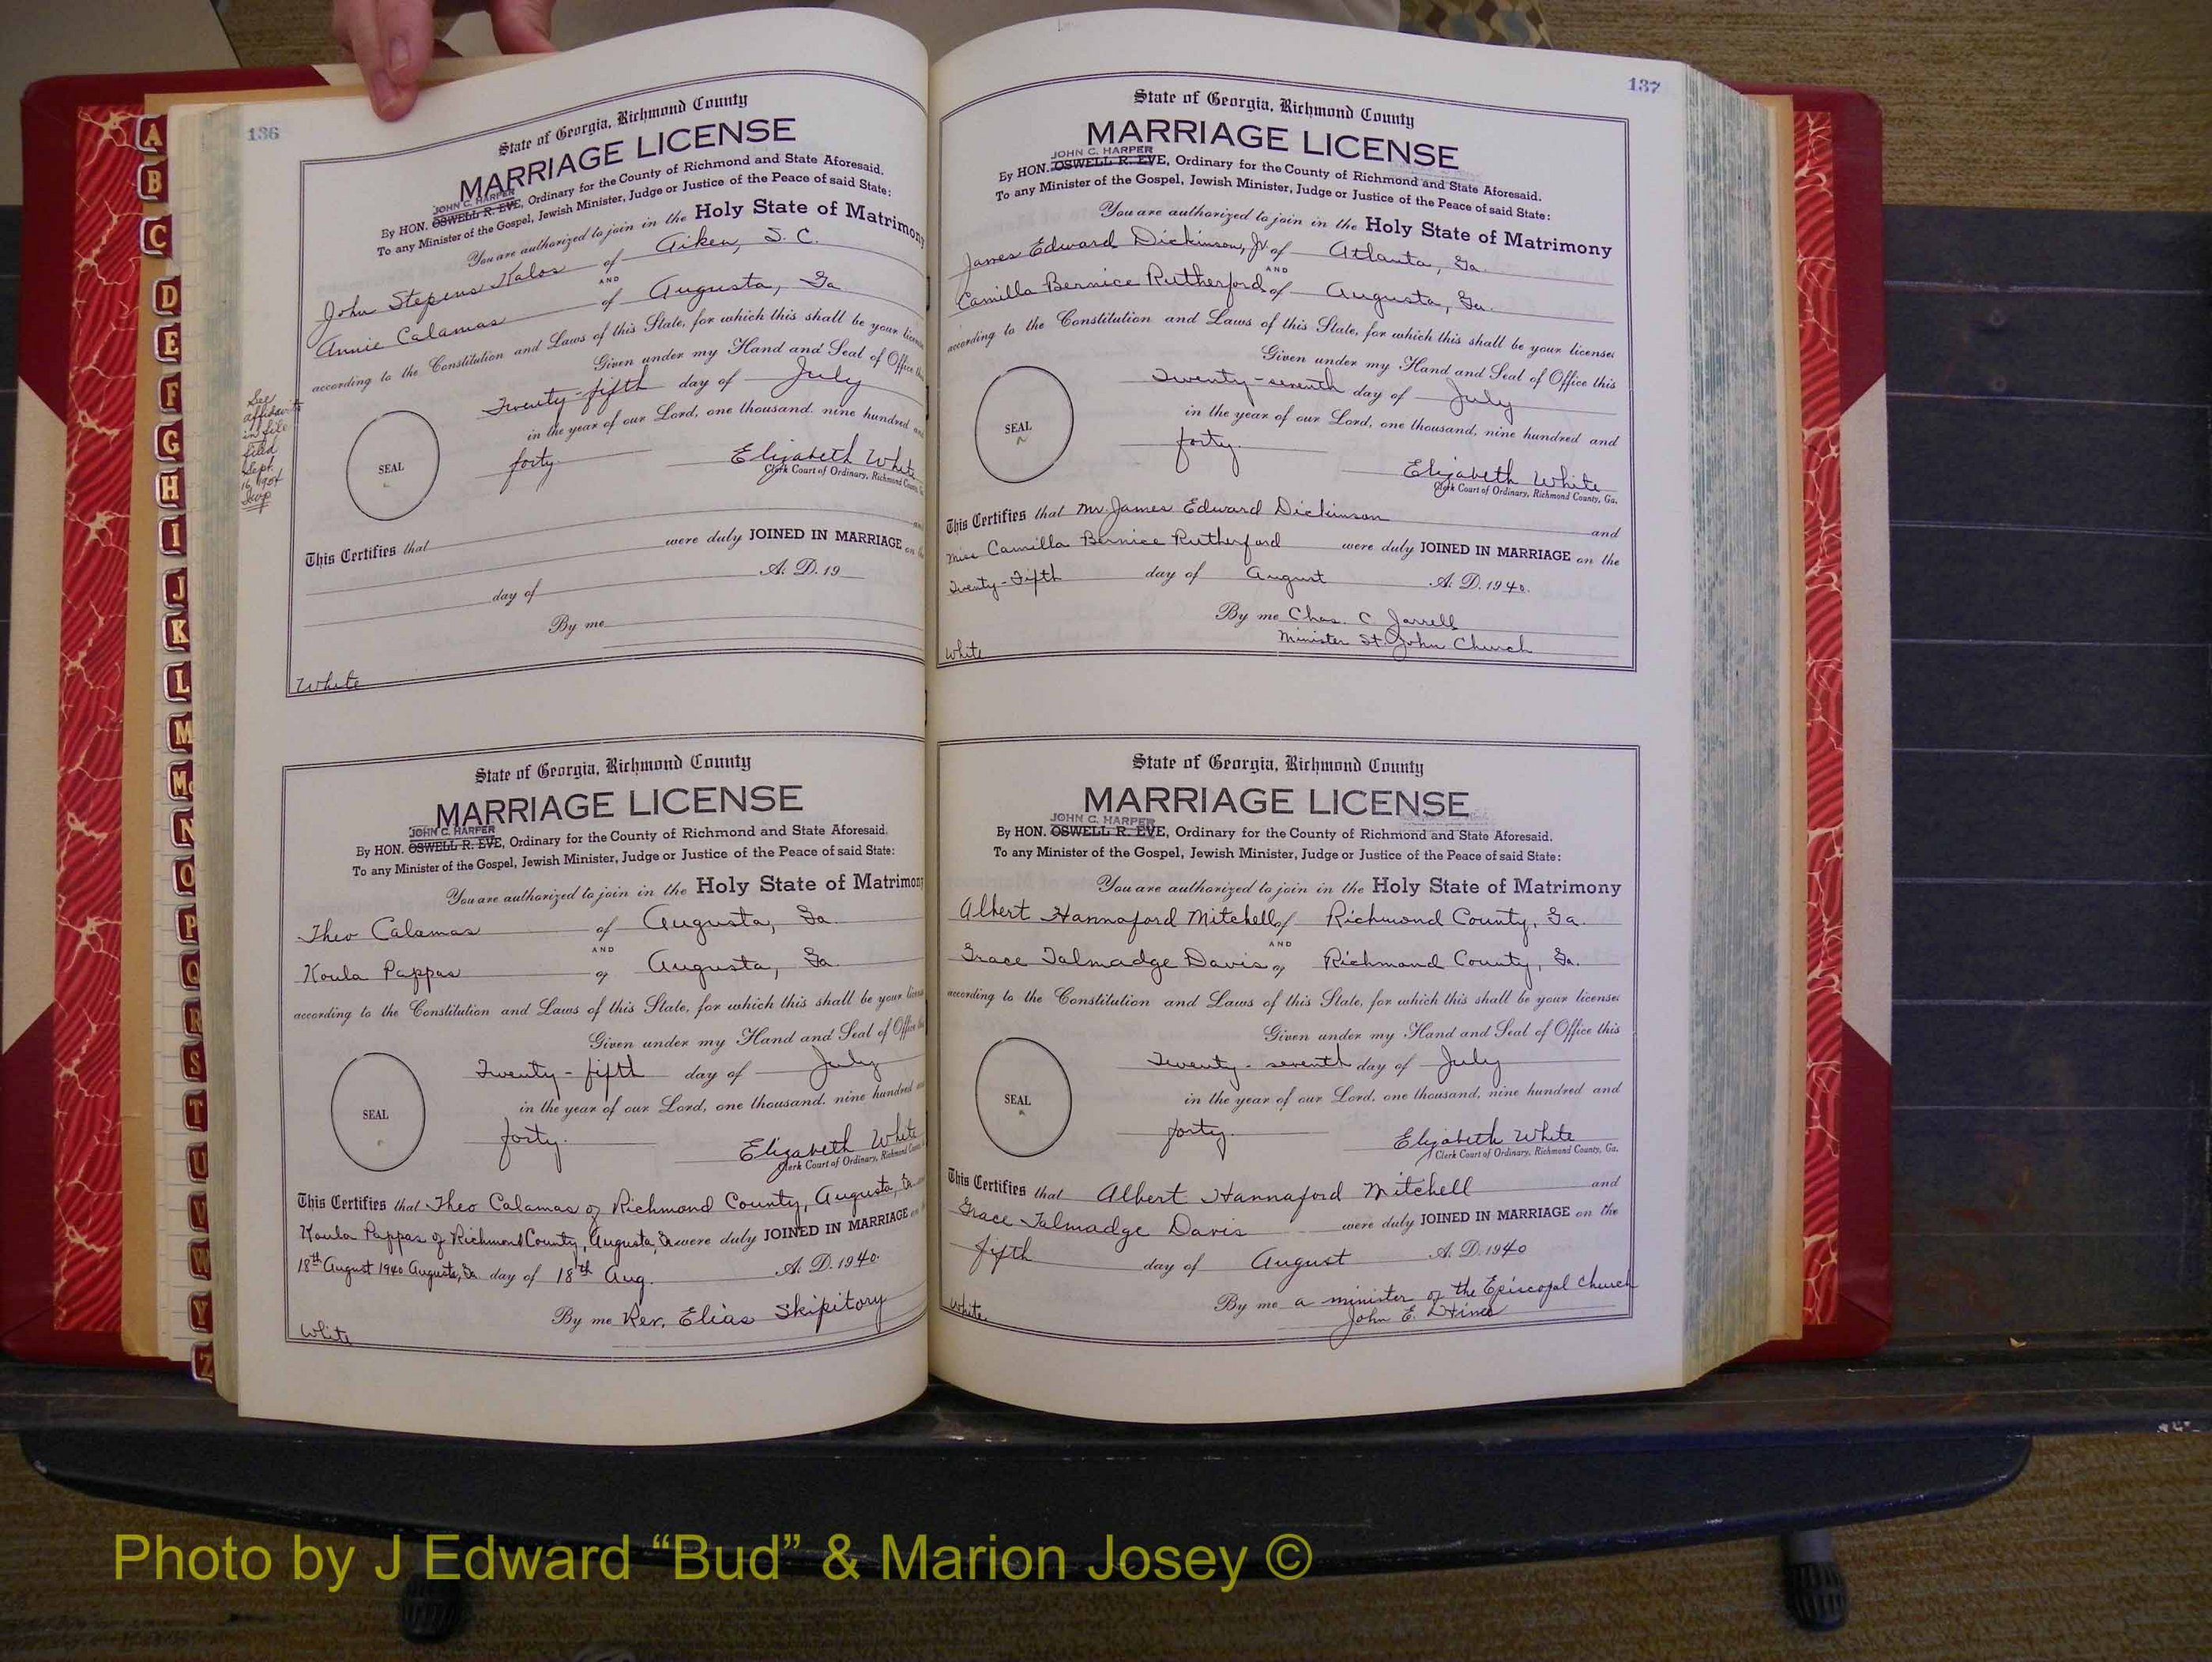 136
State of Georgia, Richmond County
MARRIAGE LICENSE
JOHN C. HARPER
By HON. OSWELL R. EVE, Ordinary for the County of Richmond and State Aforesaid.
To any Minister of the Gospel, Jewish Minister, Judge or Justice of the Peace of said State:
You are authorized to join in the Holy State of Matrimony
John Stepens Kalos of Aiken, S. C.
AND
Annie Calamas of Augusta, Ga.
according to the Constitution and Laws of this State, for which this shall be your license
Given under my Hand and Seal of Office this
Twenty-fifth day of July
in the year of our Lord, one thousand, nine hundred and
SEAL
forty.
Elizabeth White
Clerk Court of Ordinary, Richmond County, Ga.
See
affidavit
in file
filed
Sept.
16, 1954
This Certifies that and
were duly JOINED IN MARRIAGE on the
day of A. D. 19
By me
White
State of Georgia, Richmond County
MARRIAGE LICENSE
JOHN C. HARPER
By HON. OSWELL R. EVE, Ordinary for the County of Richmond and State Aforesaid.
To any Minister of the Gospel, Jewish Minister, Judge or Justice of the Peace of said State:
You are authorized to join in the Holy State of Matrimony
Theo Calamas of Augusta, Ga.
AND
Koula Pappas of Augusta, Ga.
according to the Constitution and Laws of this State, for which this shall be your license
Given under my Hand and Seal of Office this
Twenty-fifth day of July
in the year of our Lord, one thousand, nine hundred and
SEAL
forty.
Elizabeth White
Clerk Court of Ordinary, Richmond County
This Certifies that Theo Calamas of Richmond County, Augusta, Ga.
Koula Pappas of Richmond County, Augusta, Ga. were duly JOINED IN MARRIAGE on
18th August 1940 Augusta, Ga. day of 18th Aug. A. D. 1940.
By me Rev. Elias Skipitory
White
137
State of Georgia, Richmond County
MARRIAGE LICENSE
JOHN C. HARPER
By HON. OSWELL R. EVE, Ordinary for the County of Richmond and State Aforesaid.
To any Minister of the Gospel, Jewish Minister, Judge or Justice of the Peace of said State:
You are authorized to join in the Holy State of Matrimony
James Edward Dickinson, Jr. of Atlanta, Ga.
AND
Camilla Bernice Rutherford of Augusta, Ga.
according to the Constitution and Laws of this State, for which this shall be your license
Given under my Hand and Seal of Office this
Twenty-seventh day of July
in the year of our Lord, one thousand, nine hundred and
SEAL
forty.
Elizabeth White
Clerk Court of Ordinary, Richmond County, Ga.
This Certifies that Mr. James Edward Dickinson and
Miss Camilla Bernice Rutherford were duly JOINED IN MARRIAGE on the
Twenty-Fifth day of August A. D. 1940.
By me Chas. C. Jarrell
Minister St. John Church
White
State of Georgia, Richmond County
MARRIAGE LICENSE
JOHN C. HARPER
By HON. OSWELL R. EVE, Ordinary for the County of Richmond and State Aforesaid.
To any Minister of the Gospel, Jewish Minister, Judge or Justice of the Peace of said State:
You are authorized to join in the Holy State of Matrimony
Albert Hannaford Mitchell of Richmond County, Ga.
AND
Grace Talmadge Davis of Richmond County, Ga.
according to the Constitution and Laws of this State, for which this shall be your license
Given under my Hand and Seal of Office this
Twenty-seventh day of July
in the year of our Lord, one thousand, nine hundred and
SEAL
forty.
Elizabeth White
Clerk Court of Ordinary, Richmond County, Ga.
This Certifies that Albert Hannaford Mitchell and
Grace Talmadge Davis were duly JOINED IN MARRIAGE on the
fifth day of August A. D. 1940
By me a minister of the Episcopal Church
John E. Hines
White
A
B
C
D
E
F
G
H
I
J
K
L
M
Mc
N
O
P
Q
R
S
T
U
V
W
Y
Z
Photo by J Edward “Bud” & Marion Josey ©